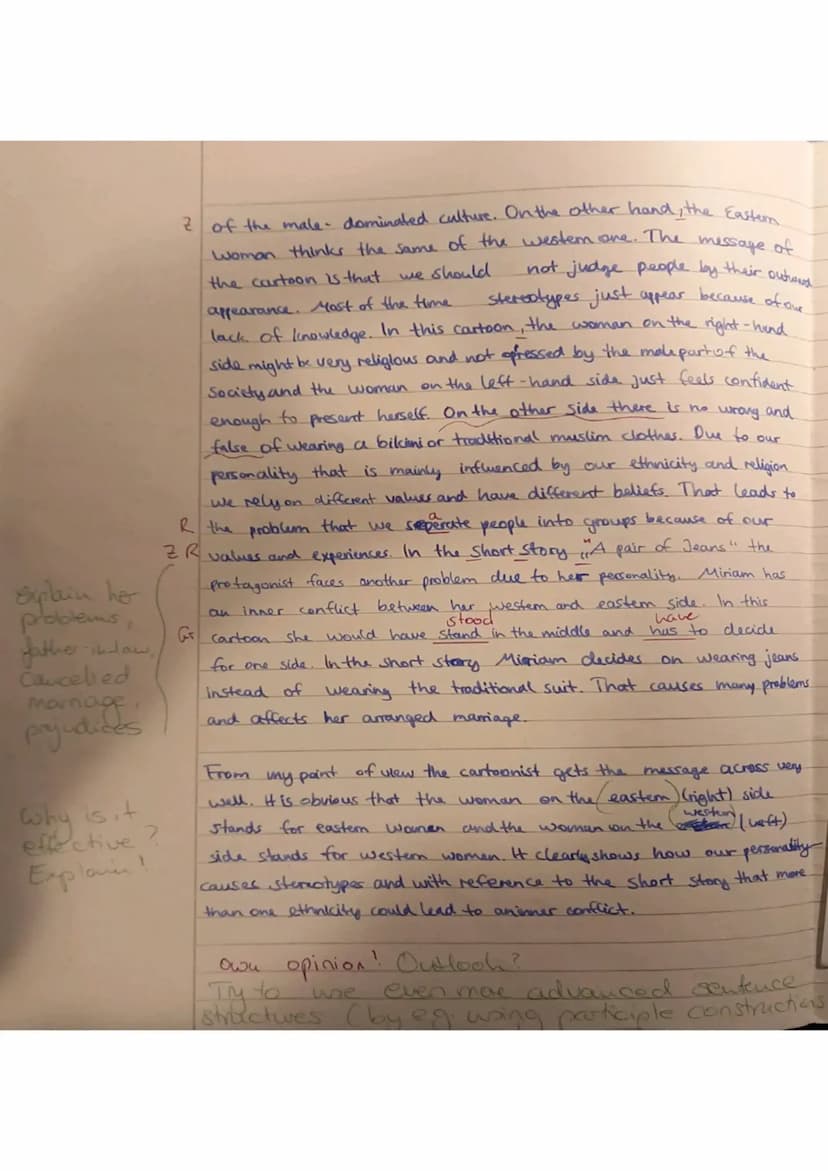 Z of the male-dominated culture. On the other hand, the Eastern
woman thinks the same of the western one. The message of
the cartoon is that we should not judge people by their outward
appearance. Most of the time stereotypes just appear because of our
lack of knowledge. In this cartoon, the woman on the right-hand
side might be very religious and not opressed by the male part of the
society and the woman on the left-hand side just feels confident
enough to present herself. On the other side there is no wrong and
false of wearing a bikini or traditional muslim clothes. Due to our
personality that is mainly influenced by our ethnicity and religion
we rely on different values and have different beliefs. That leads to
R the problem that we seperate people into groups because of our
a
Z R values and experiences. In the short story „A pair of Jeans" the
protagonist faces another problem due to her personality. Miriam has
an inner conflict between her western and eastern side. In this
stood have
Gr cartoon she would have stand in the middle and has to decide
for one side. In the short story Miriam decides on wearing jeans
instead of wearing the traditional suit. That causes many problems
and affects her arranged marriage.
explain her
problems,
father-in-law,
cancelled
marriage,
prejudices
From my point of view the cartoonist gets the message across very
well. It is obvious that the woman on the (eastern) (right) side
western
stands for eastern women and the woman on the (left)
side stands for western women. It clearly shows how our personality
causes stereotypes and with reference to the short story that more
than one ethnicity could lead to an inner conflict.
Why is it
effective?
Explain!
own opinion! Outlook?
Try to use even more advanced sentence
structures (by e.g. using participle constructions